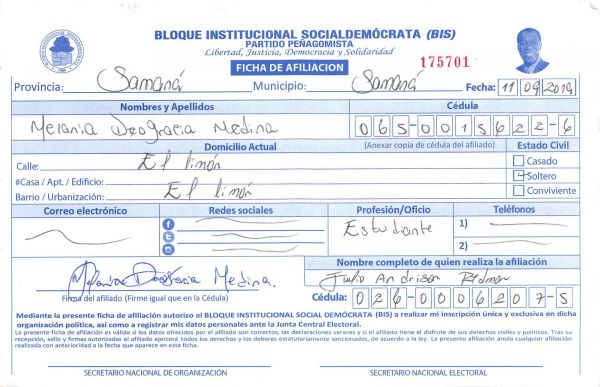 BLOQUE INSTITUCIONAL SOCIALDEMÓCRATA (BIS)
PARTIDO PEÑAGOMISTA
Libertad, Justicia, Democracia y Solidaridad
FICHA DE AFILIACION
175701
Provincia: Samaná Municipio: Samaná Fecha: 11 09 2019
Nombres y Apellidos Cédula
Melania Deogracia Medina 065-0015622-6
Domicilio Actual (Anexar copia de cédula del afiliado) Estado Civil
Calle: El limón Casado
#Casa / Apt. / Edificio: Soltero
Barrio / Urbanización: El limón Conviviente
Correo electrónico Redes sociales Profesión/Oficio Teléfonos
Estudiante 1)
2)
Nombre completo de quien realiza la afiliación
Melania Deogracia Medina. Julio Andrison
Firma del afiliado (Firme igual que en la Cédula) Cédula: 026-0006207-5
Mediante la presente ficha de afiliación autorizo al BLOQUE INSTITUCIONAL SOCIAL DEMÓCRATA (BIS) a realizar mi inscripción única y exclusiva en dicha
organización política, así como a registrar mis datos personales ante la Junta Central Electoral.
La presente ficha de afiliación es válida si los datos ofrecidos por el afiliado son correctos, las declaraciones veraces y si el afiliado tiene el disfrute de sus derechos civiles y políticos. Tras su
recepción, sello y firmas autorizadas el afiliado ejercerá todos los derechos y los deberes estatutariamente sancionados, de acuerdo a la ley. La presente afiliación anula cualquier afiliación
realizada con anterioridad a la fecha que aparece en esta ficha.
SECRETARIO NACIONAL DE ORGANIZACIÓN SECRETARIO NACIONAL ELECTORAL